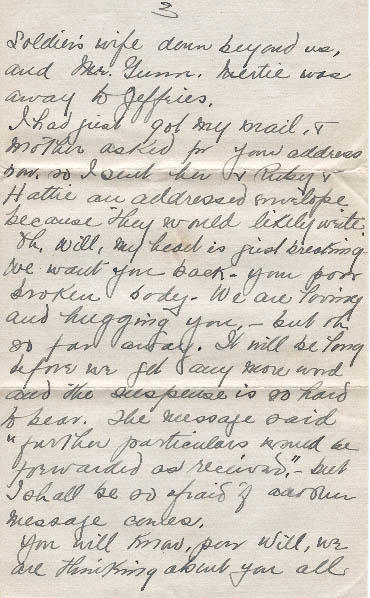 3
Soldier's wife down beyond us,
and Mr. Gunn. Mertie was
away to Jeffries.
I had just got my mail, &
Mother asked for your address
now, so I sent her & Ruby &
Hattie an addressed envelope
because they would likely write.
Oh, Will, my heart is just breaking.
We want you back - your poor
broken body. We are loving
and hugging you, - but oh
so far away. It will be long
before we get any more word
and the suspense is so hard
to bear. The message said
"further particulars would be
forwarded as received," - but
I shall be so afraid if another
message comes.
You will know, poor Will, we
are thinking about you all